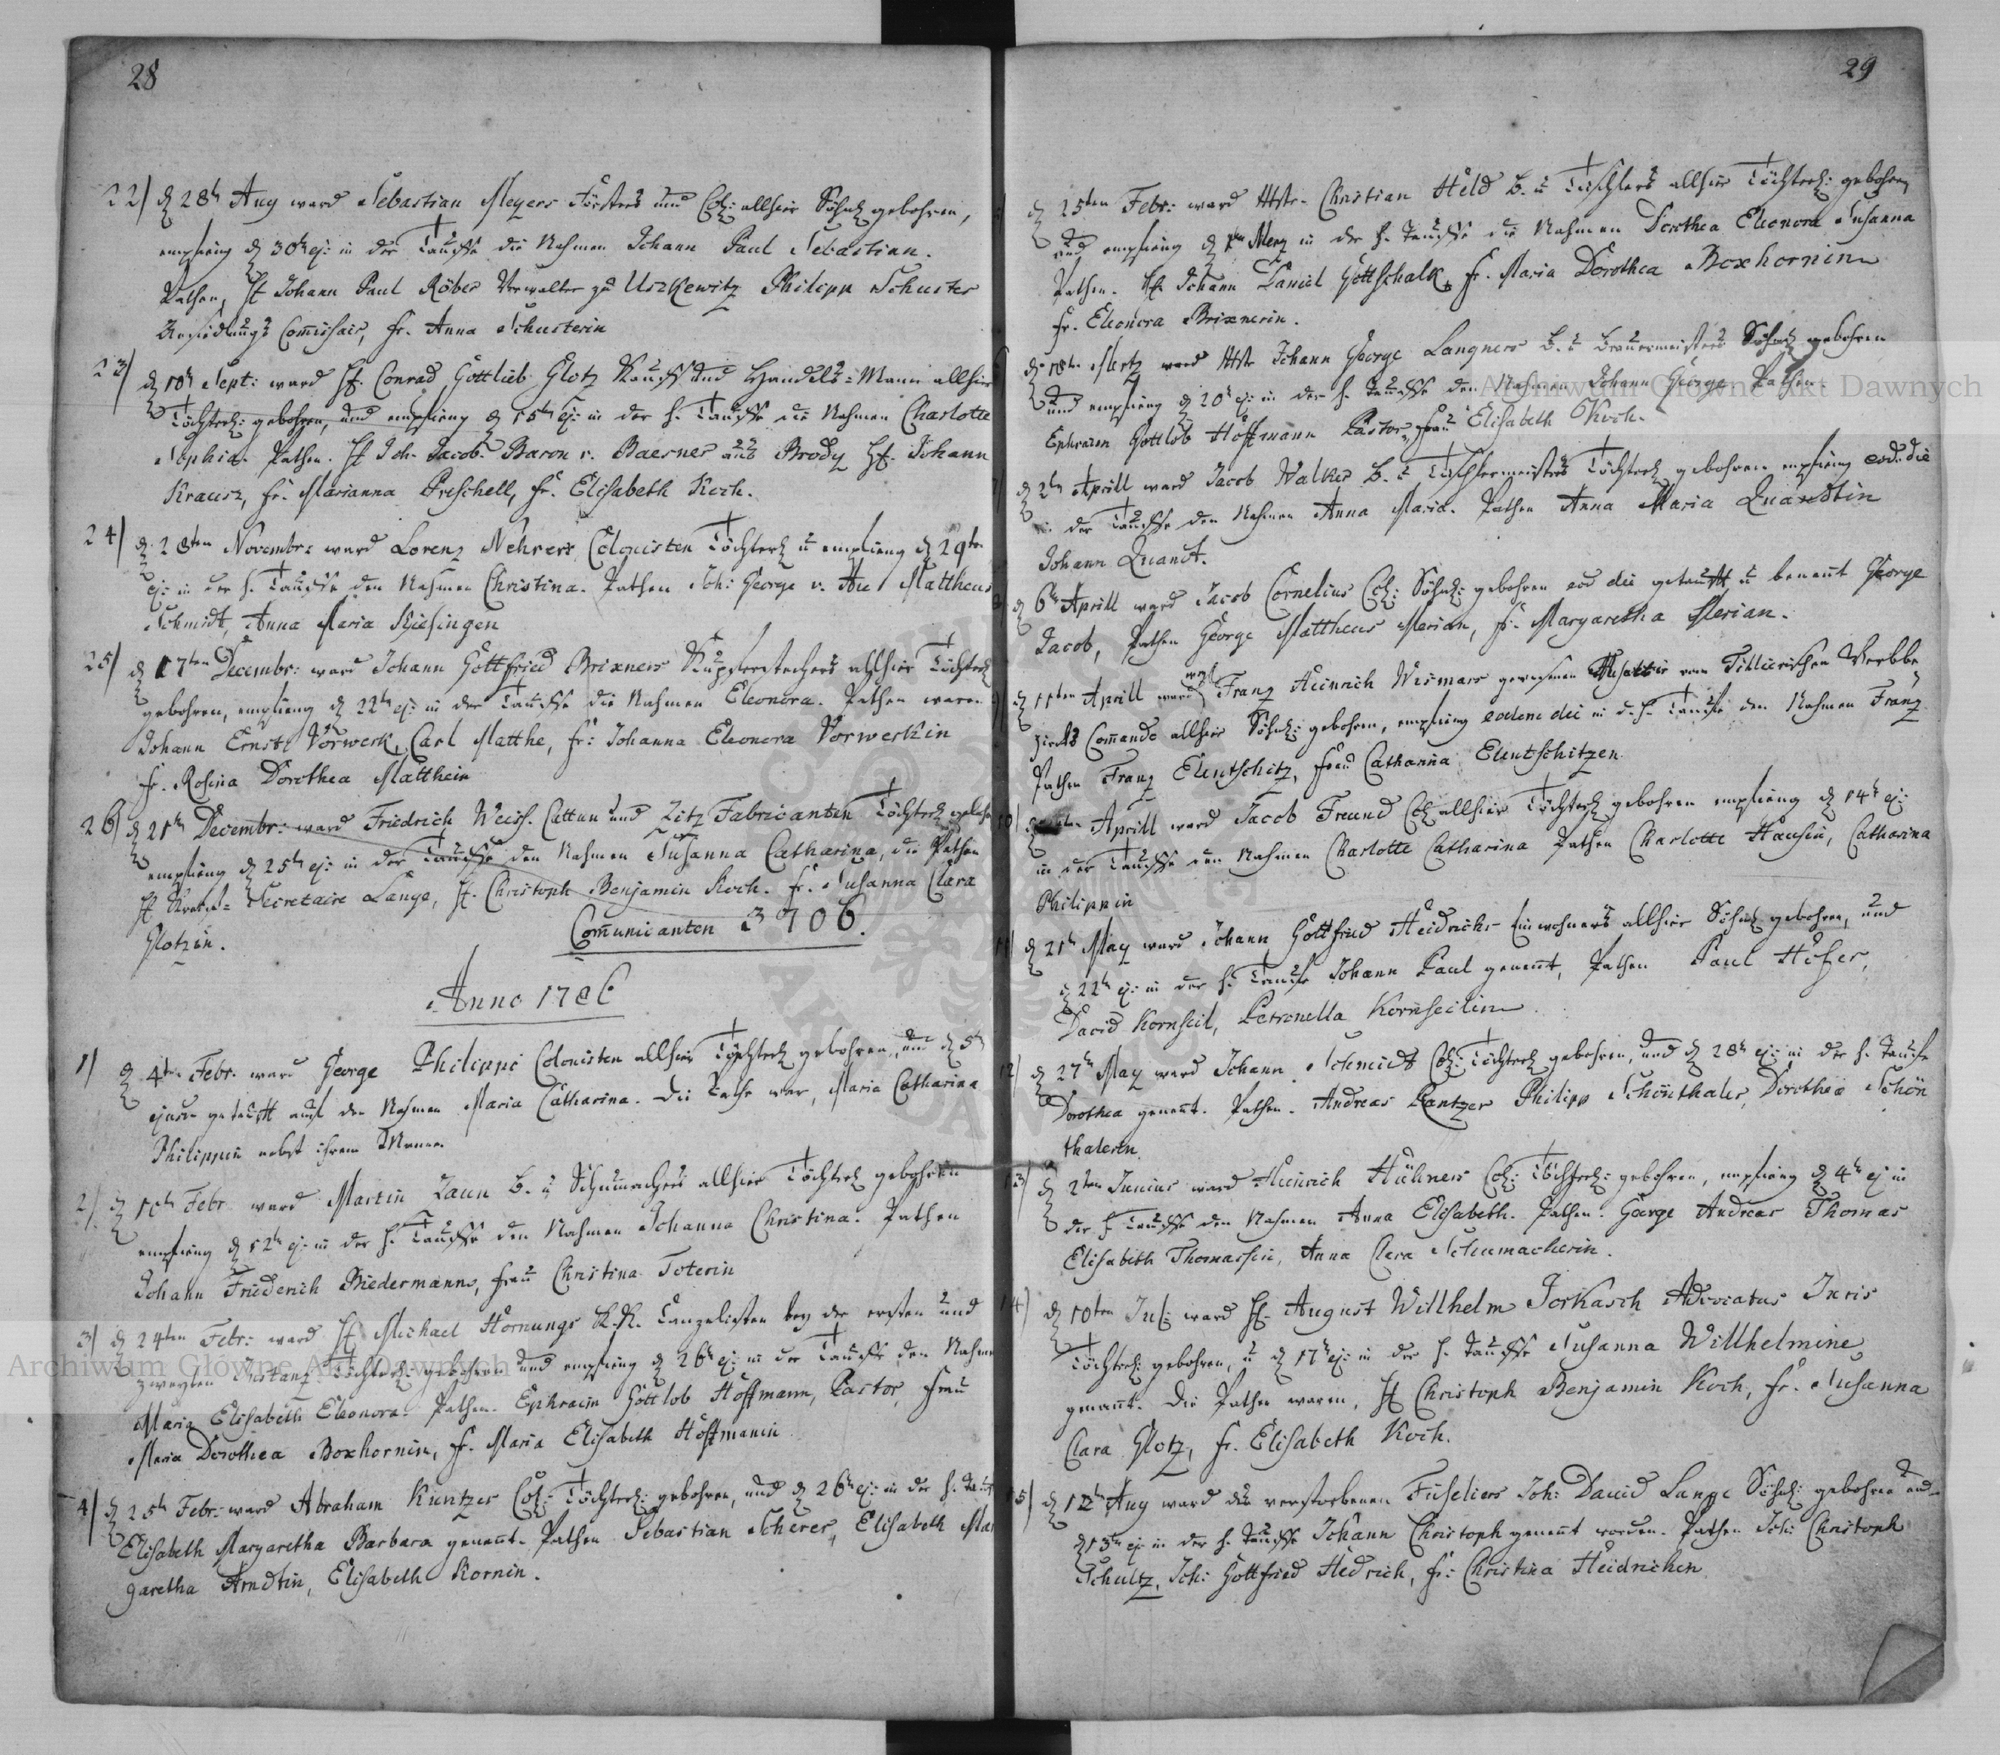 28
22) d 28t Aug ward Sebastian Meyers Försters und Col: allhier Söhnl gebohren,
empfieng d 30t ej: in der Tauffe die Nahmen Johann Paul Sebastian.
Pathen, H Johann Paul Röber Verwalter zu Uszkewitz Philipp Schuster
Commissair, Fr. Anna Schusterin
23) d 10t Sept: ward H: Conrad Gottlieb Glotz Kauff und Handels-Mann allhier
Töchterl: gebohren, und empfieng d 15t ej: in der h. Tauffe die Nahmen Charlotte
Sophia. Pathen. H Joh. Jacob Baron v. Baesner aus Brody H: Johann
Krausz, Fr. Marianna Preschell, Fr. Elisabeth Koch.
24) d. 28ten Novembr: ward Lorenz Nehrers Colonisten Töchterl u empfieng d 29ten
ej: in der h. Tauffe den Nahmen Christina. Pathen Joh: George v. Au Mattheus
Schmidt, Anna Maria
25) d 17ten Decembr: ward Johann Gottfried Brixners Kupferstechers allhier Töchterl
gebohren, empfieng d 22t ej: in der Tauffe die Nahmen Eleonora. Pathen waren
Johann Ernst Vorwerk, Carl Matthe, Fr: Johanna Eleonora Vorwerkin
Fr. Rosina Dorothea Matthein
26) d 21t Decembr: ward Friedrich Weiss. Cattun und Zitz Fabricanten Töchterl gebohr
empfieng d 25t ej: in der Tauffe den Nahmen Susanna Catharina, die Pathen
H Secretaire Lange, H. Christoph Benjamin Koch. Fr. Susanna Clara
Glotzin.
Communicanten 3706.
Anno 1786
1) d 4ten Febr. ward George Philippi Colonisten allhier Töchterl gebohren, und d 5t
getaufft auf den Nahmen Maria Catharina. Die Pathe war, Maria Catharina
Philippin nebst ihrem Manne
2) d 10t Febr ward Martin Zaun B. u Schumachers allhier Töchterl gebohren
empfieng d 12t ej: in der h. Tauffe den Nahmen Johanna Christina. Pathen
Johann Friederich Biedermanns, Frau Christina Toterin
3) d 24ten Febr: ward H Michael Hornungs K.K. Canzelisten bey der ersten und
zweyten Instanz Töchterl: gebohren und empfieng d 26t ej: in der Tauffe den Nahmen
Maria Elisabeth Eleonora. Pathen. Ephraim Gottlob Hoffmann, Pastor, Frau
Maria Dorothea Boxhornin, Fr. Maria Elisabeth Hoffmanin
4) d 25t Febr: ward Abraham Kuntzes Col: Töchterl: gebohren, und d 26t ej: in der h. Tauf
Elisabeth Margaretha Barbara genennt. Pathen Sebastian Scherer, Elisabeth Mar
garetha Arndtin, Elisabeth Kornin.
29
d 25ten Febr: ward Mstr. Christian Held B. u Tischlers allhier Töchterl: gebohren
und empfieng d Merz in der h. Tauffe die Nahmen Dorothea Eleonora Susanna
Pathen. H. Johann Daniel Gottschalk, Fr. Maria Dorothea Boxhornin
Fr. Eleonora Brixnerin.
d. 18ten Mertz ward Mstr Johann George Langners B. u Brauermeisters Söhnl gebohren
und empfieng d 20t ej: in der h. Tauffe den Nahmen Johann George. Pathen
Ephraim Gottlob Hoffmann Pastor, Frau Elisabeth Koch.
7) d 2ten Aprill ward Jacob Walkers B. u Töchterl gebohren empfieng eod. die
in der Tauffe den Nahmen Anna Maria. Pathen Anna Maria Quandtin
Johann Quandt.
8) d 6t Aprill ward Jacob Cornelius Col: Söhnl: gebohren eod die getaufft u benennt George
Jacob, Pathen George Mattheus Merian, Fr. Margaretha Merian.
9) d 11ten Aprill ward weyl Franz Heinrich Wismars gewesenen vom Tillierischen Werbbe
zirks Commando allhier Söhnl: gebohren, empfieng eodem die in d. h. Tauffe den Nahmen Franz
Pathen Franz Elentschitz, Frau Catharina Elentschitzen
10) Aprill ward Jacob Freund Col allhier Töchterl gebohren empfieng d 14t ej:
in der Tauffe den Nahmen Charlotte Catharina Pathen Charlotte Hausin, Catharina
Philippin
11) d 21t May ward Johann Gottfried Heidrichs Einwohners allhier Söhnl gebohren, und
d 22t ej: in der h. Tauffe Johann Paul genennt, Pathen Paul Hofer,
David Kornseil, Petronella Kornseilin
12) d 27t May ward Johann Schmidt Col: Töchterl gebohren, und d 28t ej: in der h. Tauffe
Dorothea genennt. Pathen. Andreas Pantzer Philipp Schönthaler, Dorothea Schön
thalerin
13) d 2ten Junius ward Heinrich Hühners Col: Töchterl: gebohren, empfieng d 4t ej in
der h Tauffe den Nahmen Anna Elisabeth. Pathen. George Andreas Thomas
Elisabeth Thomassin, Anna Clara Schumacherin.
14) d 10ten Jul: ward H. August Willhelm Jorkasch Advocatus Juris
Töchterl: gebohren, u d 17t ej: in der h. Tauffe Susanna Willhelmine
genannt. Die Pathen waren, H Christoph Benjamin Koch, Fr. Susanna
Clara Glotz, Fr. Elisabeth Koch.
15) d 12t Aug ward des verstorbenen Fuseliers Joh: David Lange Söhnl: gebohren und
d 13t ej in der h. Tauffe Johann Christoph genennt worden. Pathen Joh: Christoph
Schultz, Joh: Gottfried Hedrich, Fr: Christina Heidrichen
Archiwum Główne Akt Dawnych
Archiwum Główne Akt Dawnych